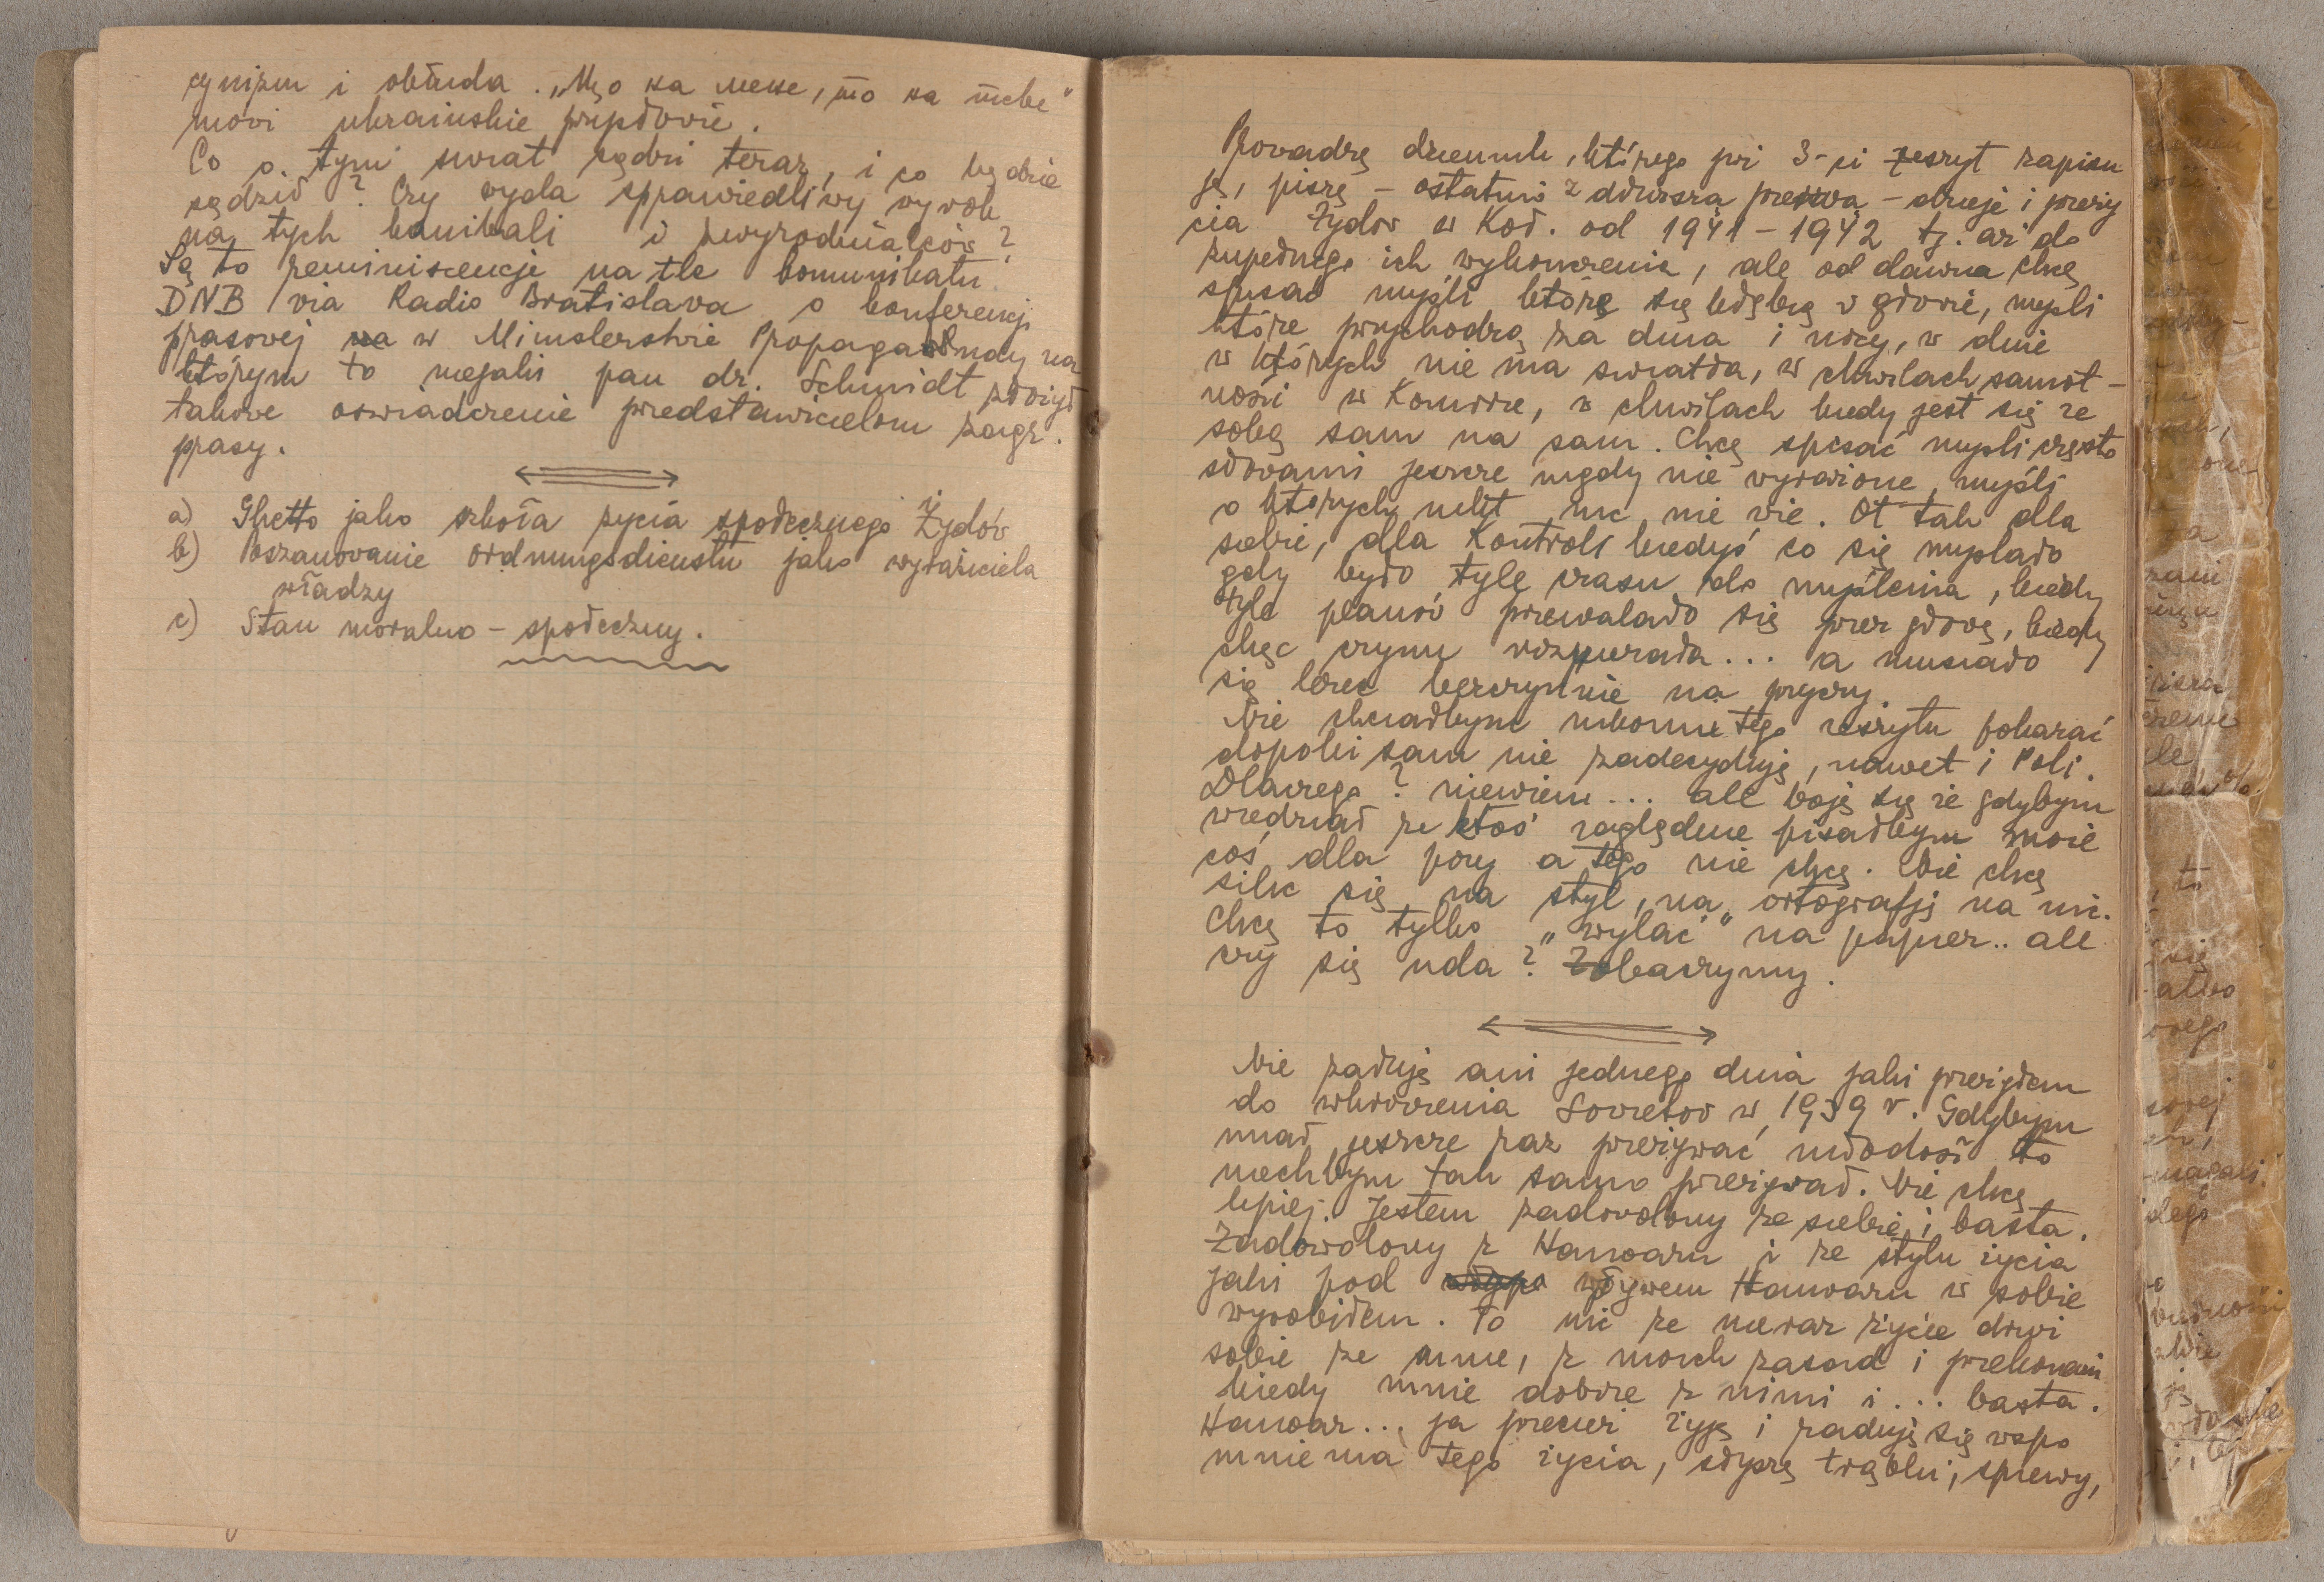 cynizm i obłuda. „Що на мене, то на тебе"
movi ukrainskie przysłovie.
Co o tym swiat sądzi teraz, i co będzie
sądził? Czy wyda sprawiedliwy wyrok
na tych kanibali i zwyrodnialców?
Są to reminiscencje na tle komunikatu
DNB via Radio Bratislava o konferencji
prasovej w Minsterstwie Propagandy na
którym to niejaki pan dr. Schmidt złożył
takove oswiadczenie przedstawicielom zagr.
prasy.
a) Ghetto jako szkoła życia społecznego Żydów
b) Poszanowanie ordnungsdienstu jako wyraziciela
władzy
c) Stan moralno - społeczny.
Provadzę dziennik, którego już 3-ci zeszyt zapisu
ję, piszę - ostatnio z dłuższą przerwą - dzieje i przeży
cia Żydov w Koł. od 1941 - 1942 tj. aż do
zupełnego ich wykonczenia, ale od dawna chcę
spisac myśli które się kłębią v głovie, mysli
które przychodzą za dnia i nocy, v dnie
w których nie ma swiatła, w chwilach samot-
nosci w Komorze, v chwilach kiedy jest się ze
sobą sam na sam. Chcę spisać mysli często
słovami jeszcze nigdy nie wyrażone, myśli
o ktorych nikt nic nie vie. Ot tak dla
siebie, dla Kontroli kiedyś co się myslało
gdy było tyle czasu do myślenia, kiedy
tyle planóv przewalało się przez głovę, kiedy
chęć czynu rozpierała... a musiało
się leżec bezczynnie na pryczy.
Nie chciałbym nikomu tego zeszytu pokazać
dopoki sam nie zadecyduję, nawet i Poli.
Dlaczego? niewiem... ale boję się że gdybym
wiedział że ktoś zaglądnie pisałbym może
coś dla pozy a tego nie chcę. Nie chcę
silic się na styl, na ortografję na nic.
Chcę to tylko „wylać" na papier.. ale
czy się uda? Zobaczymy.
Nie żałuję ani jednego dnia jaki przeżyłem
do wkroczenia Sovietov w 1939 r. Gdybym
miał jeszcze raz przeżywać młodość to
niechbym tak samo przeżywał. Nie chcę
lepiej. Jestem zadovolony ze siebie i basta.
Zadowolony z Hanoaru i ze stylu życia
jaki pod wpływem Hanoaru w sobie
wyrobiłem. To nic że nieraz życie drwi
sobie ze mnie, z moich zasad i przekonań
kiedy mnie dobrze z nimi i... basta.
Hanoar... ja przecież żyję i raduję się vspo
mnieniami tego życia, słyszę trąbki, spiewy,